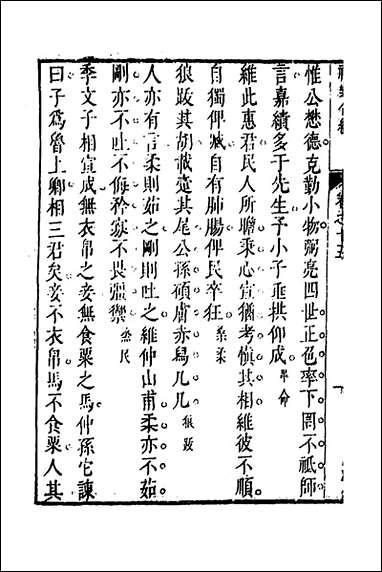 惟公懋德克勤小物弼亮四世正色率下罔不祗師
言嘉績多于先生予小子垂拱仰成 畢命
維此惠君民人所瞻秉心宣猶考慎其相維彼不順
自獨俾臧自有肺腸俾民卒狂 桑柔
狼跋其胡載疐其尾公孫碩膚赤舄几几 狼跋
人亦有言柔則茹之剛則吐之維仲山甫柔亦不茹
剛亦不吐不侮矜寡不畏彊禦 烝民
季文子相宣成無衣帛之妾無食粟之馬仲孫它諫
曰子爲魯上卿相三君矣妾不衣帛馬不食粟人其